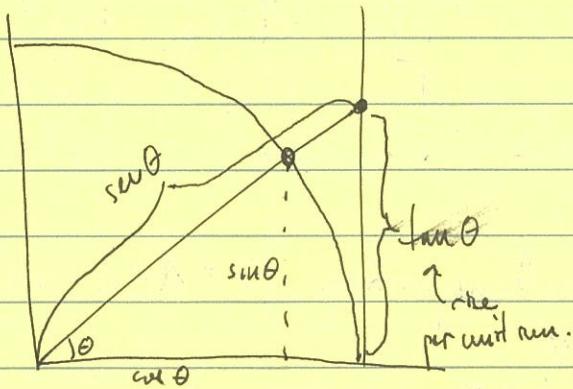 sec θ
tan θ
sin θ
rise
per unit run.
θ
cos θ